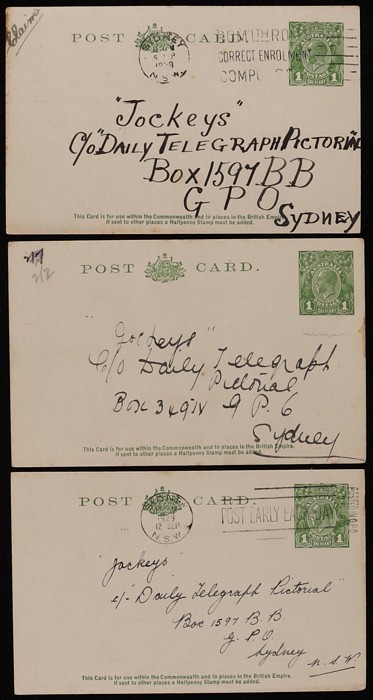 Claims
POST CARD.
SYDNEY
N.S.W
CORRECT ENROLMENT
AUSTRALIA
1 1
"Jockeys"
C/o "DAILY TELEGRAPH PICTORIAL
BOX 1597 BB
G P O
SYDNEY
This Card is for use within the Commonwealth and to places in the British Empire.
If sent to other places a Halfpenny Stamp must be added.
2/2
POST CARD.
AUSTRALIA
1 1
"Jockeys"
C/o Daily Telegraph
Pictorial
Box 349
Sydney
This Card is for use within the Commonwealth and to places in the British Empire.
If sent to other places a Halfpenny Stamp must be added.
POST CARD.
SYDNEY
12 SEP
N.S.W
POST EARLY EACH DAY
1 1
"Jockeys"
c/- "Daily Telegraph Pictorial"
Box 1597 B.B.
G. P.O.
Sydney
N.S.W.
This Card is for use within the Commonwealth and to places in the British Empire.
If sent to other places a Halfpenny Stamp must be added.